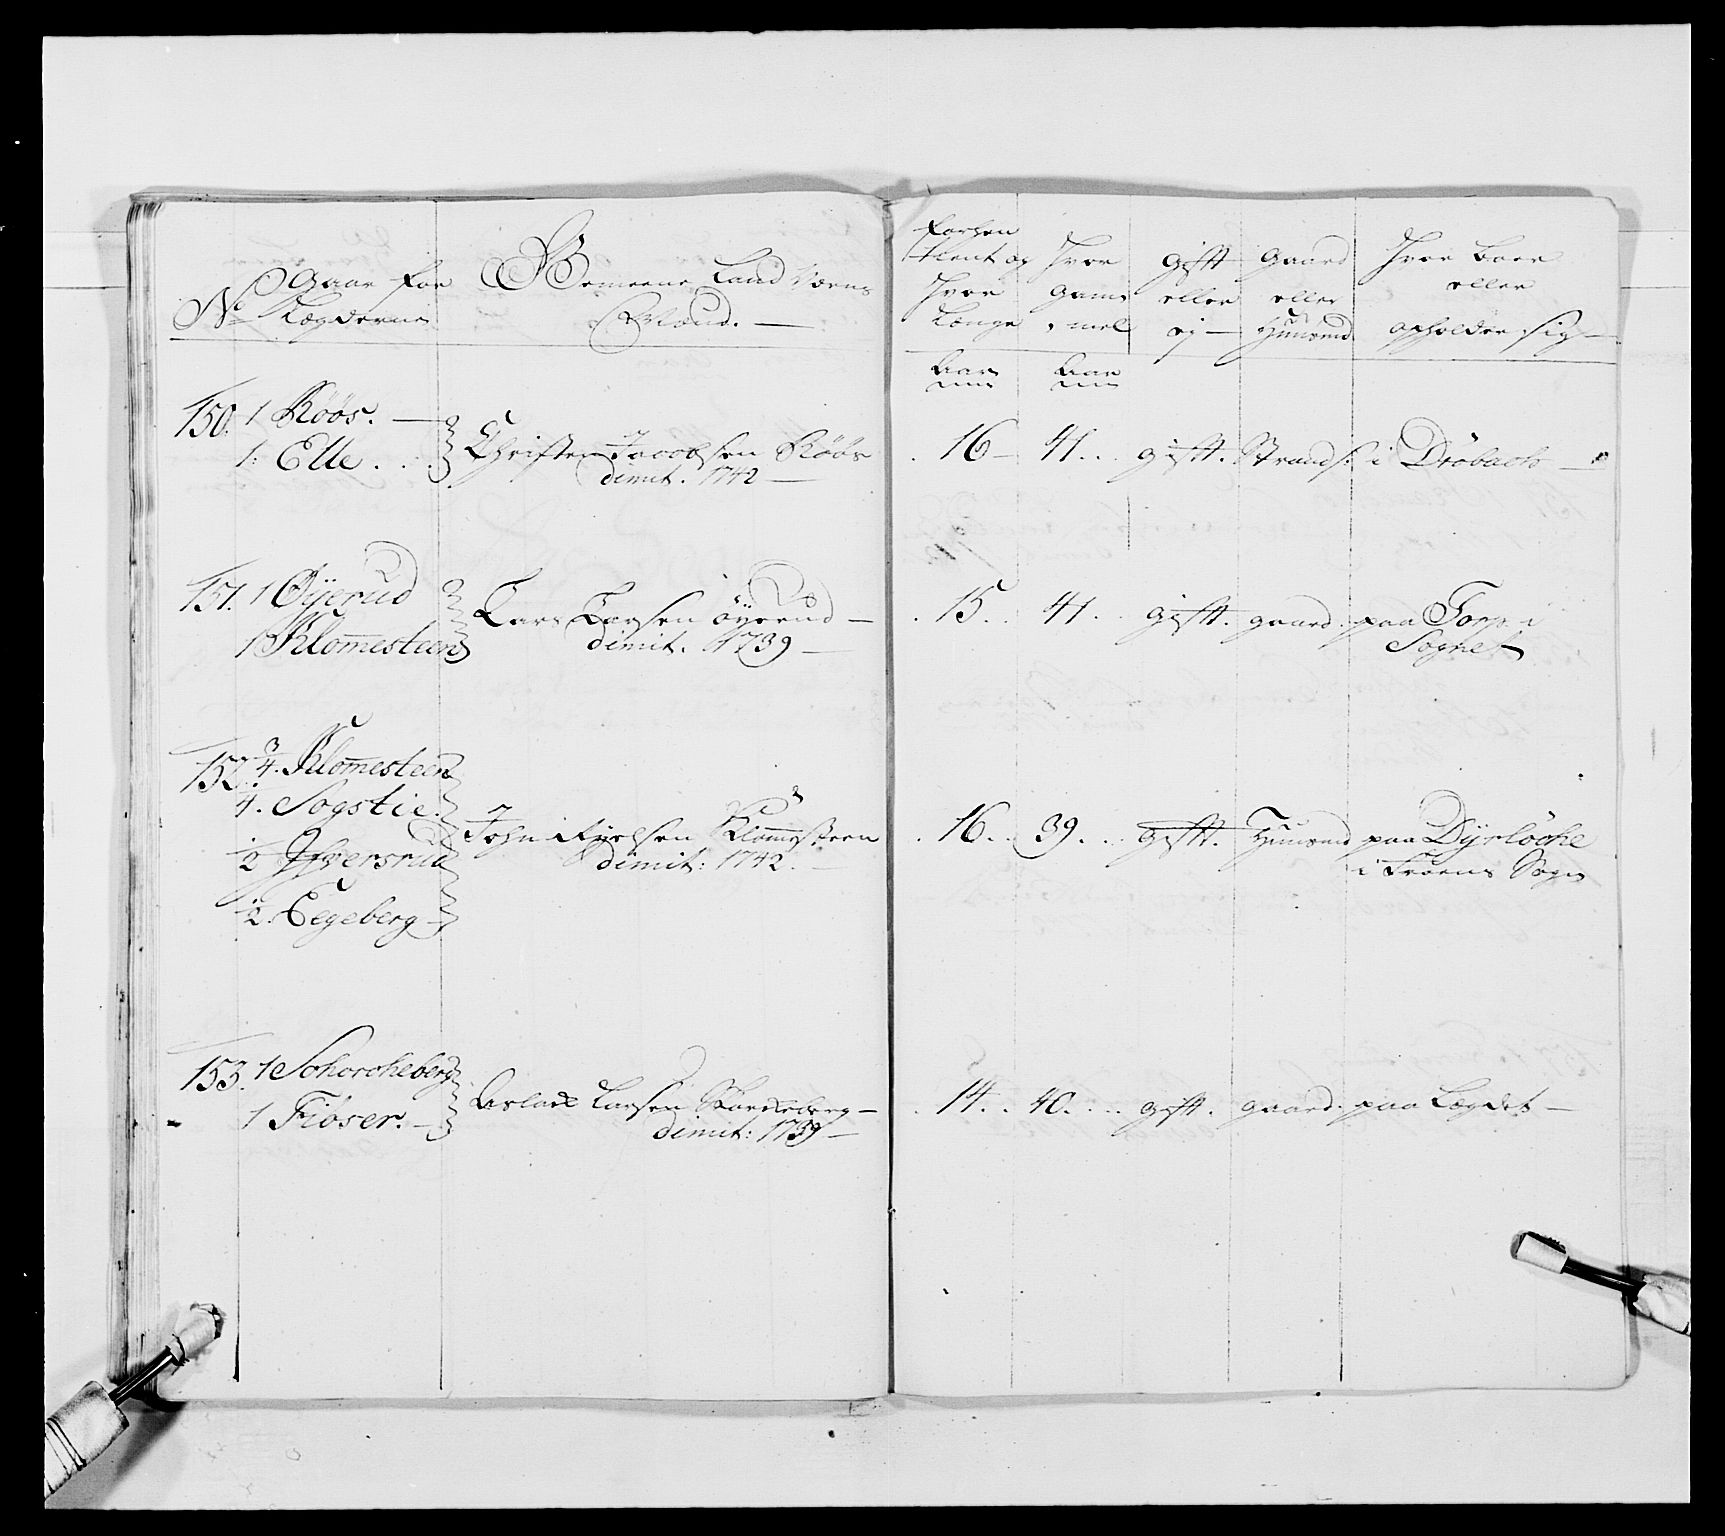 Gaar for
No Lægderne
Gemeene Land Værns
Mænd. —
forhen
tient og
hvor
Længe
hvor
gam-
mel
gift
eller
ej —
gaard
eller
Huusmd
hvor boer
eller
opholder sig —
Aar
Aar
150. 1 Röös. —
1: Elle. . .
Christen Jacobsen Röös
dimit. 1742 —
16 — 41. . gift. Strands: i Dröbach —
151. 1 Öÿerud
1 Klomesteen
Lars Larsen öyerud —
dimit. 1739 —
15. . 41. . gift. gaard. paa Torp i
Sognet
152. 3/4. Klomesteen
4. Sogstie.
1/2 Ifversrud
1/2. Eegeberg —
John Klomesteen
dimit: 1742. —
16. . 39. . . gift. Huusmd paa Dyrlöche
i Froens Sogn
153. 1 Schorcheberg
1 Fiöser. —
Aslack Larsen Skorckeberg —
dimit: 1739 —
14. . 40. . . . gift. gaard: paa Lægdet —